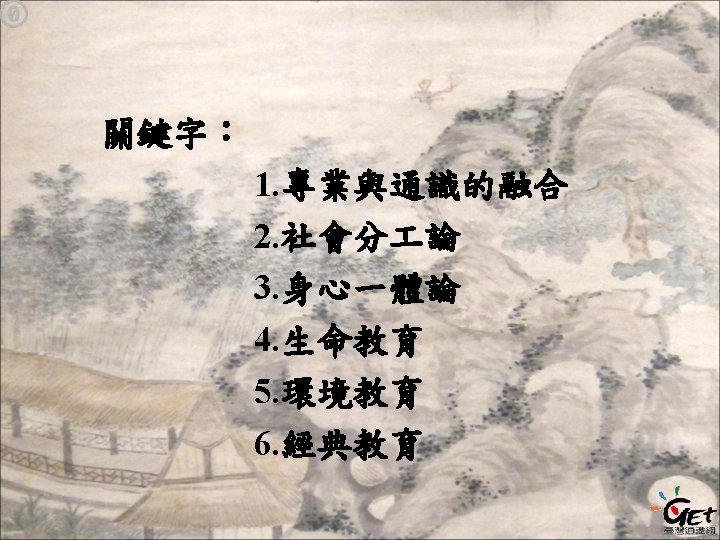 關鍵字：
1. 專業與通識的融合
2. 社會分工論
3. 身心一體論
4. 生命教育
5. 環境教育
6. 經典教育
GEt
臺灣通識網